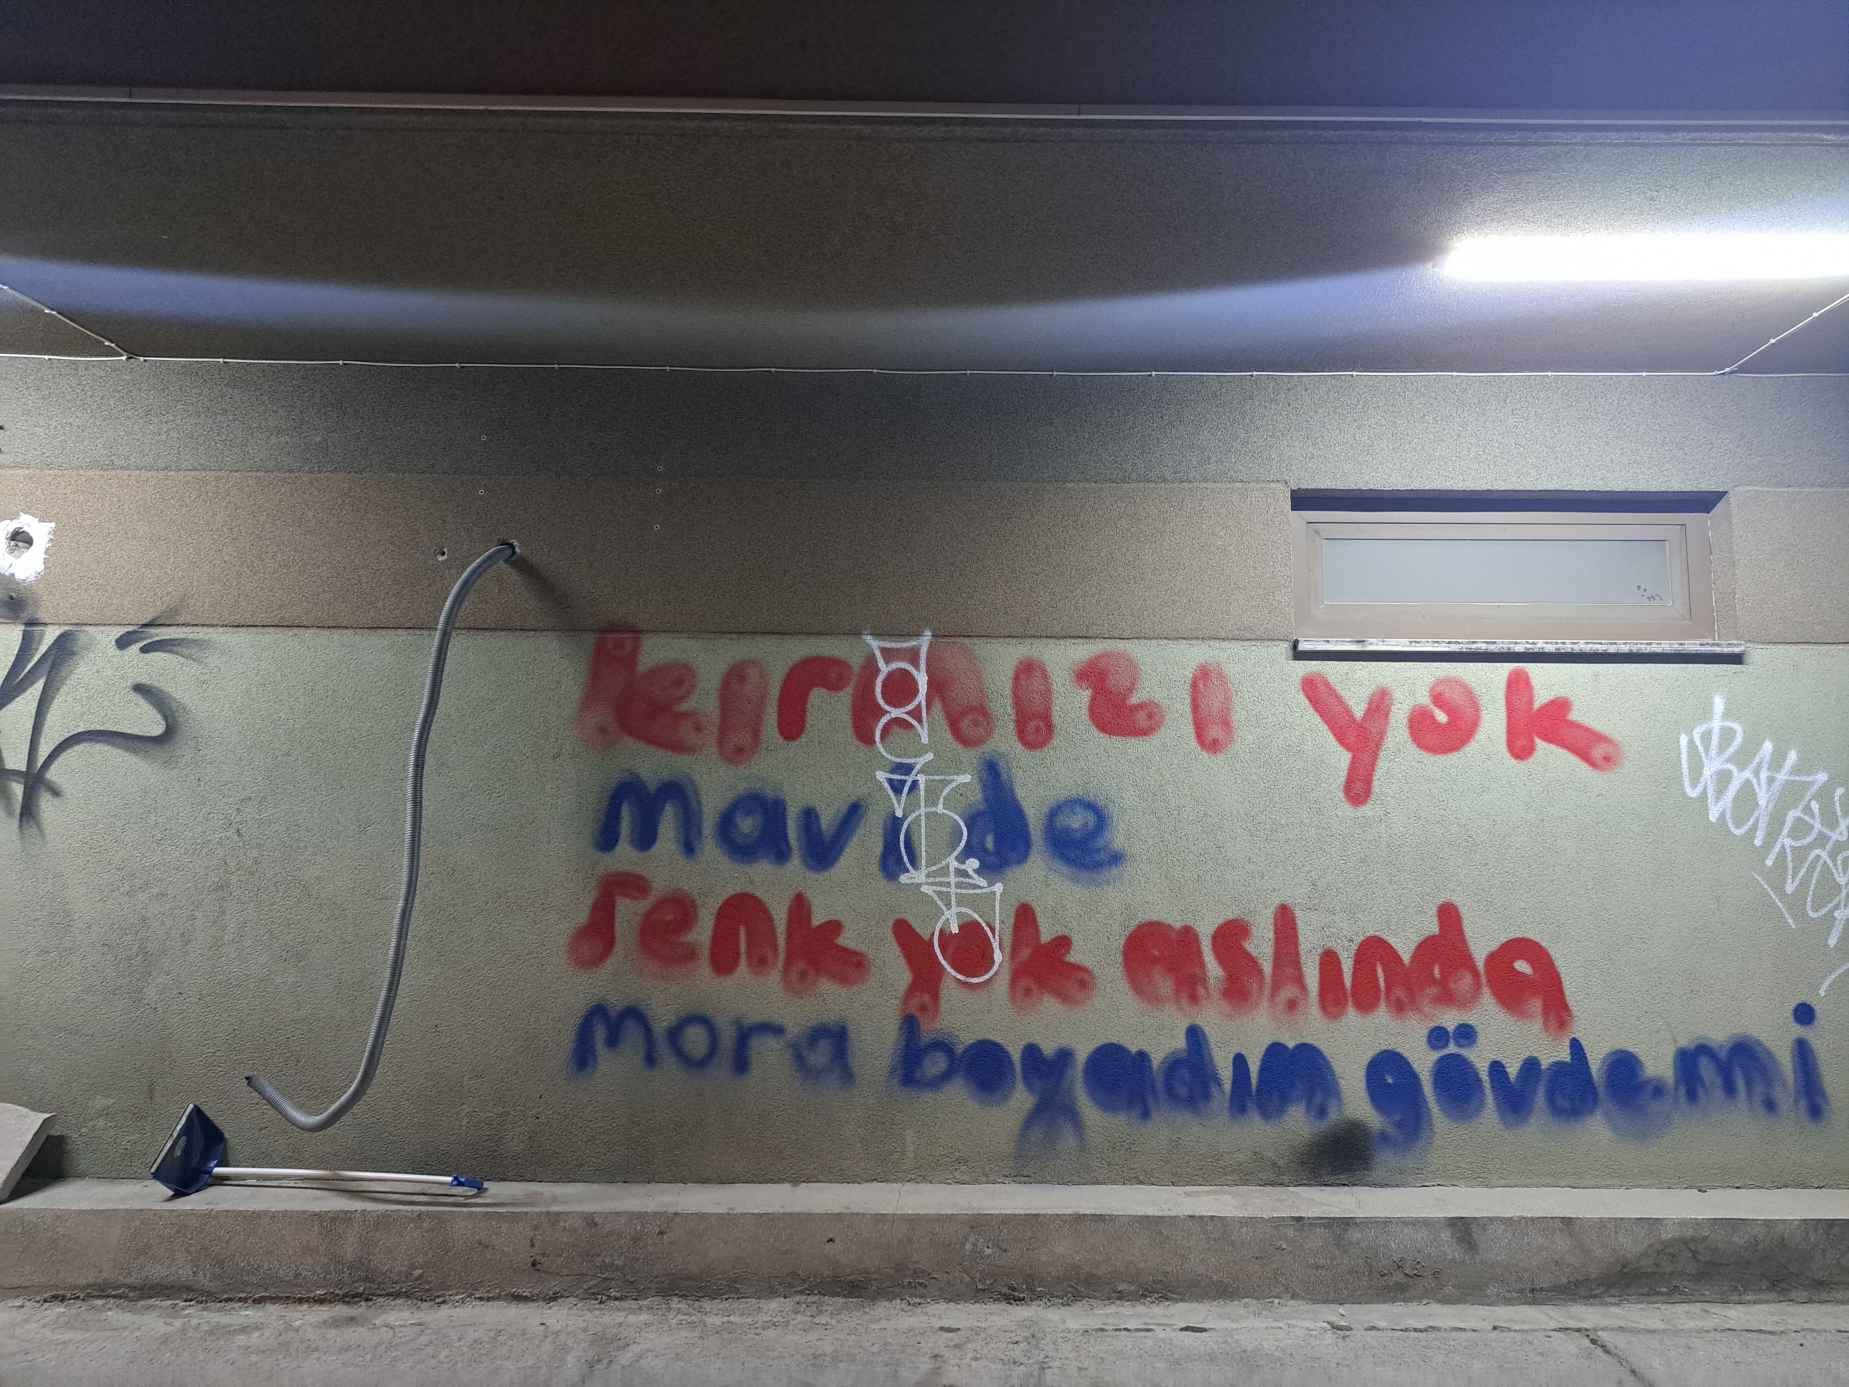 kırmızı yok
mavi de
renk yok aslında
mora boyadım gövdemi